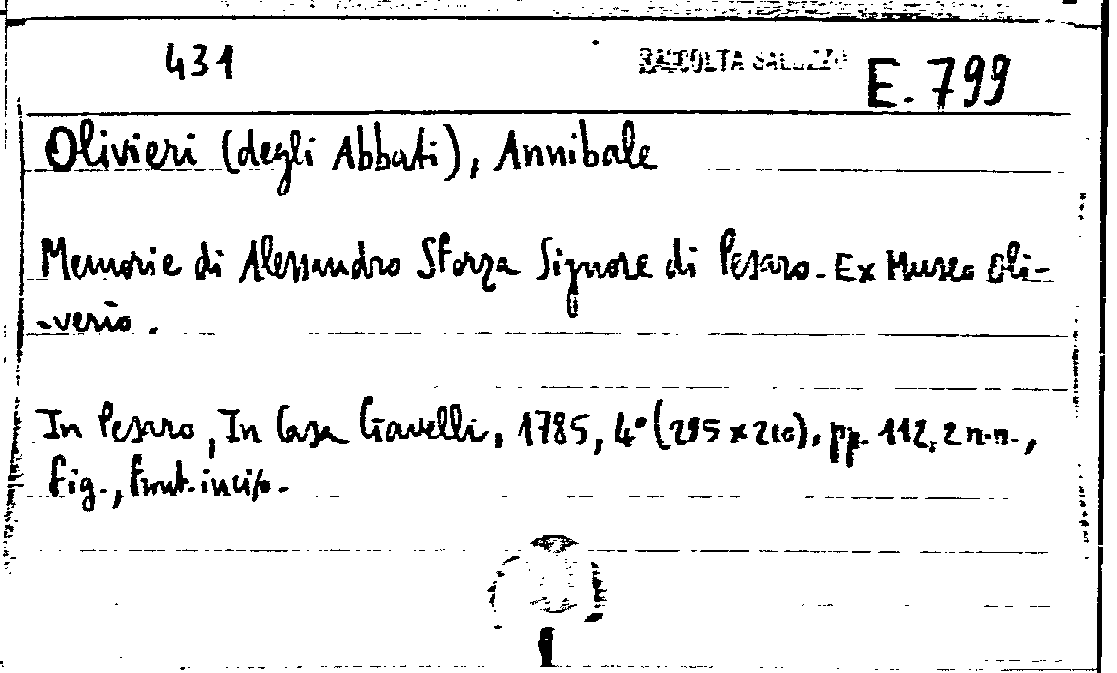 431 RACCOLTA SALUZZO E. 799
Olivieri (degli Abbati), Annibale
Memorie di Alessandro Sforza Signore di Pesaro - Ex Museo Oli-
-verio.
In Pesaro, In Casa Gavelli, 1785, 4° (285 x 210), pp. 112, 2 n.n.,
fig., front. inciso.